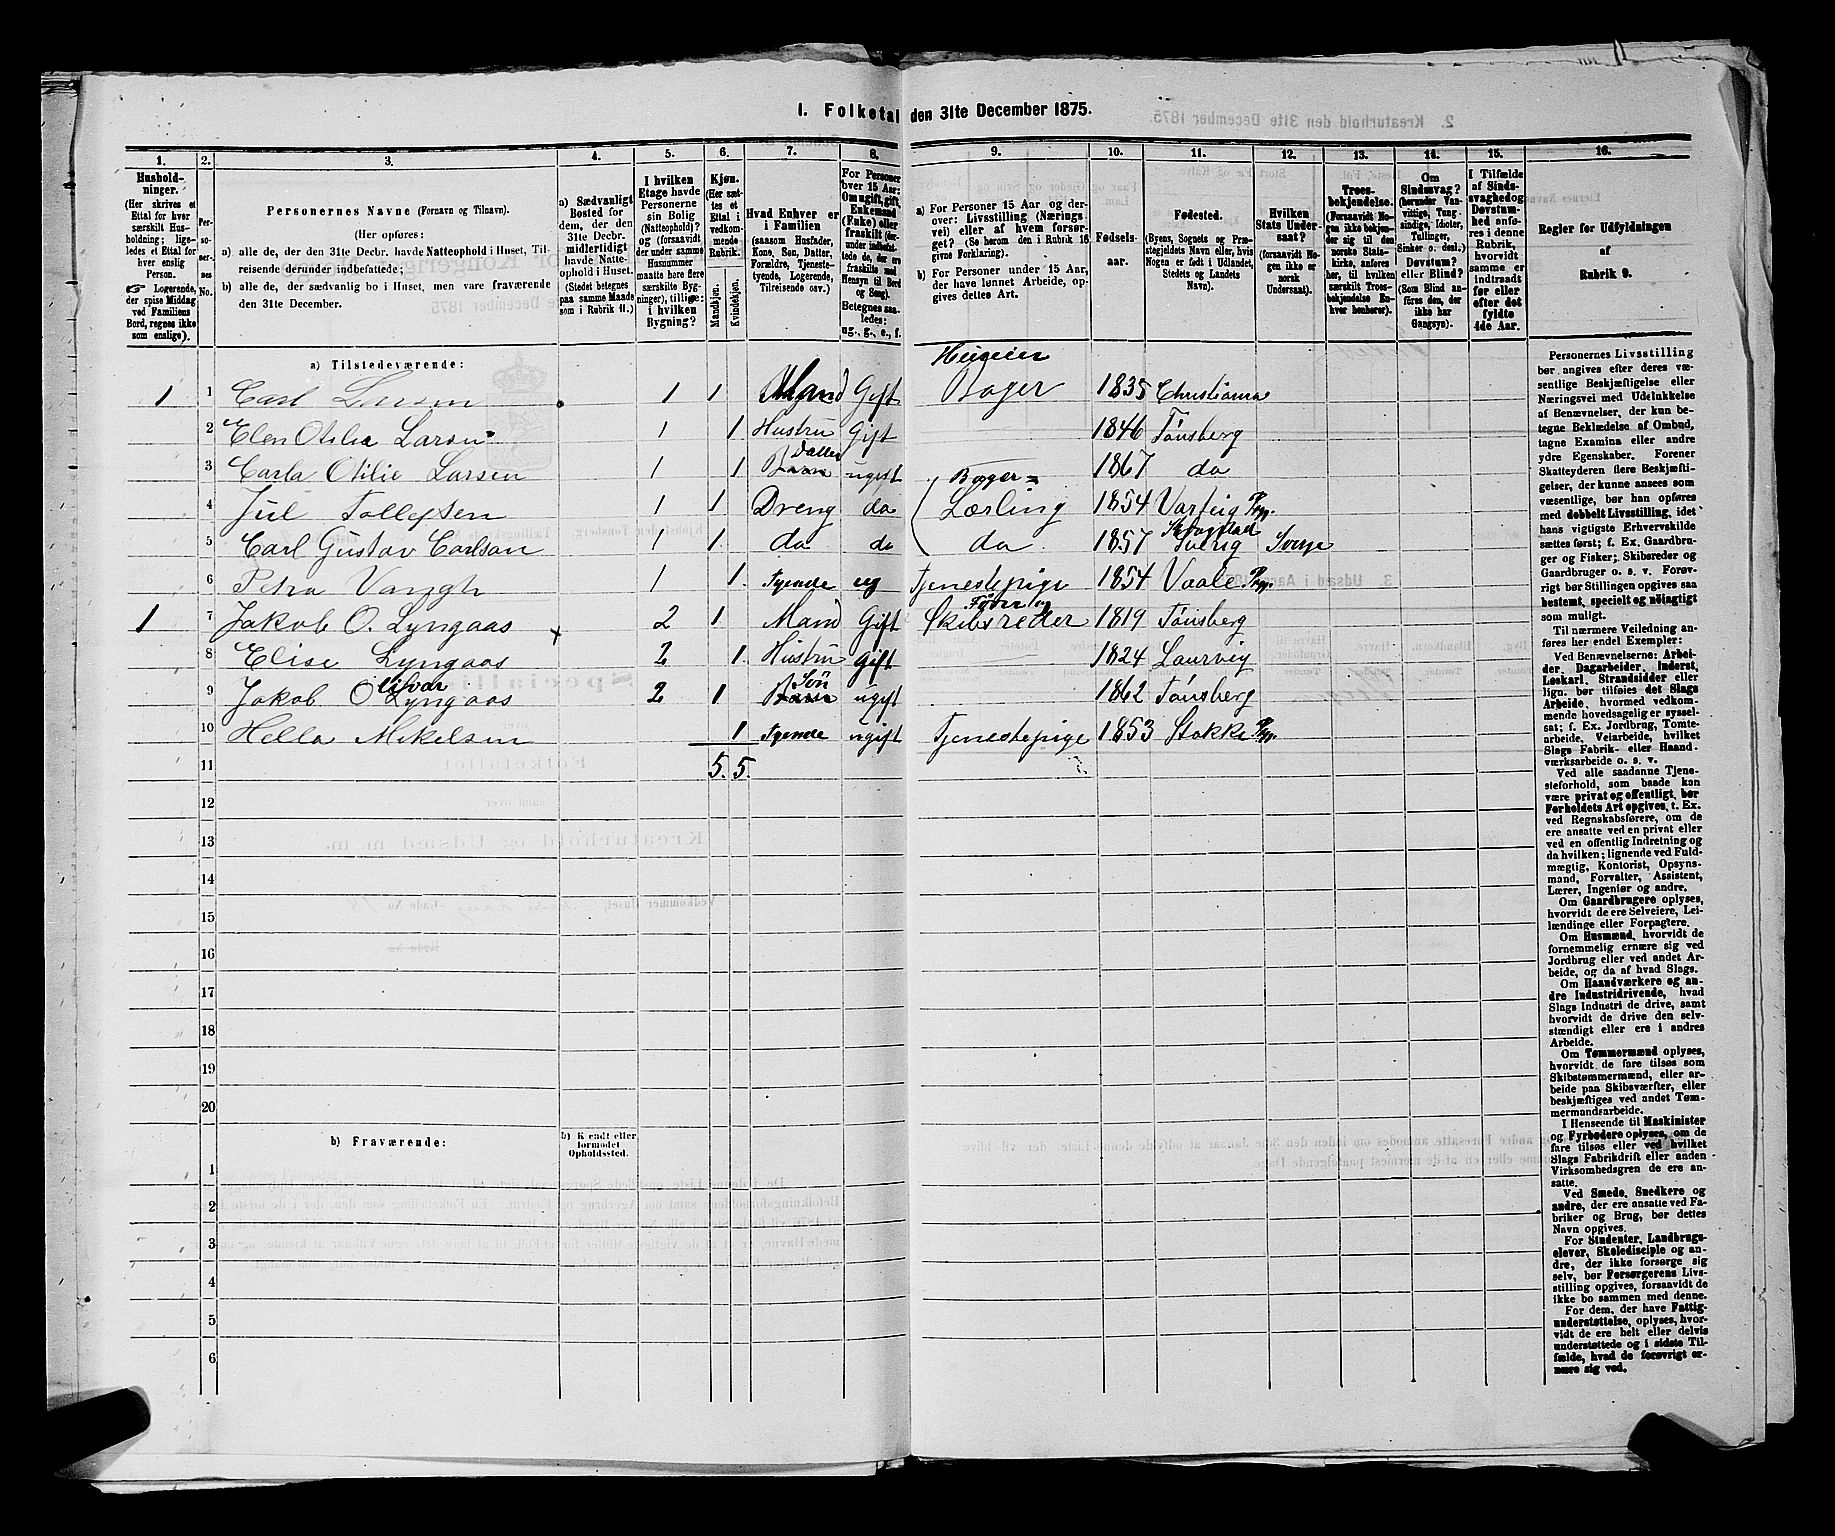 I. Folketal den 31te December 1875.
1. 2. 3. 4. 5. 6. 7. 8. 9. 10. 11. 12. 13. 14. 15. 16.
Hushold-
ninger.
(Her skrives et
Ettal for hver
særskilt Hus-
holdning; lige-
ledes et Ettal for
hver enslig
Person.
☞ Logerende,
der spise Middag
ved Familiens
Bord, regnes ikke
som enslige).
Per-
so-
ner-
nes
No.
Personernes Navne (Fornavn og Tilnavn).
(Her opføres:
a) alle de, der den 31te Decbr. havde Natteophold i Huset, Til-
reisende derunder indbefattede;
b) alle de, der sædvanlig bo i Huset, men vare fraværende
den 31te December.
a) Sædvanligt
Bosted for
dem, der den
31te Decbr.
midlertidigt
havde Natte-
ophold i Huset.
(Stedet betegnes
paa samme Maade
som i Rubrik 11.)
I hvilken
Etage havde
Personerne
sin Bolig
(Natteophold)?
og (forsaavidt
der under samme
Husnummer
maatte høre flere
særskilte Byg-
ninger), tillige:
i hvilken
Bygning?
Kjøn.
(Her sæt-
tes et
Ettal i
vedkom-
mende
Rubrik.
Mandkjøn.
Kvindekjøn.
Hvad Enhver er
i Familien
(saasom Husfader,
Kone, Søn, Datter,
Forældre, Tjeneste-
tyende, Logerende,
Tilreisende osv.)
For Personer
over 15 Aar:
Om ugift, gift,
Enkemand
(Enke) eller
fraskilt
Betegnes saa-
ledes:
ug., g., e., f.
a) For Personer 15 Aar og der-
over: Livsstilling (Nærings-
vei) eller af hvem forsør-
get? (Se herom den i Rubrik 16
givne Forklaring).
b) For Personer under 15 Aar,
der have lønnet Arbeide, op-
gives dettes Art.
Fødsels-
aar.
Fødested.
(Byens, Sognets og Præ-
stegjeldets Navn eller, hvis
Nogen er født i Udlandet,
Stedets og Landets
Navn).
Hvilken
Stats Under-
saat?
(forsaavidt No-
gen ikke er
norsk
Undersaat).
Troes-
bekjendelse.
(Forsaavidt No-
gen ikke bekjen-
der sig til den
norske Stats-
kirke, anføres
her, til hvilken
særskilt Troes-
bekjendelse En-
hver henhører).
Om
Sindssvag?
(herunder Van-
vittige, Tung-
sindige, Idioter,
Tullinger,
Sinker o. desl.)
Døvstum?
eller Blind?
(Som Blind an-
føres den, der
ikke har
Gangsyn).
I Tilfælde
af Sinds-
svaghed og
Døvstum-
hed anfø-
res i denne
Rubrik,
hvorvidt
samme er
indtraadt
før eller
efter det
fyldte
4de Aar.
Regler for Udfyldningen
af
Rubrik 9.
a) Tilstedeværende:
Huseier
1 1 Carl Larsen 1 1 Mand Gift Bager 1835 Christiania
2 Elen Otilia Larsen 1 1 Hustru Gift 1846 Tönsberg
3 Carla Otilie Larsen 1 1 Datter ugift 1867 do
Bager=
4 Jul Tollefsen 1 1 Dreng do Lærling 1854 Varteig Pgj.
5 Carl Gustav Carlson 1 1 do do do 1857 Sverig Sverge
6 Petra Vangh 1 1 Tyende ug Tjenestepige 1854 Vaale Pgj.
Fører og
1 7 Jakob O. Lyngaas × 2 1 Mand Gift Skibsreder 1819 Tönsberg
8 Elise Lyngaas 2 1 Hustru Gift 1824 Laurvig
9 Jakob Olivar Lyngaas 2 1 Søn ugift 1862 Tönsberg
10 Hella Mikelsen 1 Tyende ugift Tjenestepige 1853 Stokke Pgj.
11 5. 5.
12
13
14
15
16
17
18
19
20
b) Fraværende:
b) Kjendt eller
formodet
Opholdssted.
1
2
3
4
5
6
Personernes Livsstilling
bør angives efter deres væ-
sentlige Beskjæftigelse eller
Næringsvei med Udelukkelse
af Benævnelser, der kun be-
tegne Beklædelse af Ombud,
tagne Examina eller andre
ydre Egenskaber. Forener
Skatteyderen flere Beskjæfti-
gelser, der kunne ansees som
væsentlige, bør han opføres
med dobbelt Livsstilling, idet
hans vigtigste Erhvervskilde
sættes først; f. Ex. Gaardbru-
ger og Fisker; Skibsreder og
Gaardbruger o. s. v. Forøv-
rigt bør Stillingen opgives saa
bestemt, specielt og nöiagtigt
som muligt.
Til nærmere Veiledning an-
føres her endel Exempler:
Ved Benævnelserne: Arbei-
der, Dagarbeider, Inderst,
Løskarl, Strandsidder eller
lign. bør tilføies det Slags
Arbeide, hvormed vedkom-
mende hovedsagelig er syssel-
sat; f. Ex. Jordbrug, Tomte-
arbeide, Veiarbeide, hvilket
Slags Fabrik- eller Haand-
værksarbeide o. s. v.
Ved alle saadanne Tjene-
steforhold, som baade kan
være privat og offentligt, bør
Forholdets Art opgives, t. Ex.
ved Regnskabsførere, om de
ere ansatte ved en privat eller
ved en offentlig Indretning og
da hvilken; lignende ved Fuld-
mægtig, Kontorist, Opsyns-
mand, Forvalter, Assistent,
Lærer, Ingeniør og andre.
Om Gaardbrugere oplyses,
hvorvidt de ere Selveiere, Lei-
lændinge eller Forpagtere.
Om Husmænd, hvorvidt de
fornemmelig ernære sig ved
Jordbrug eller ved andet Ar-
beide, og da af hvad Slags.
Om Haandværkere og an-
dre Industridrivende, hvad
Slags Industri de drive, samt
hvorvidt de drive den selv-
stændigt eller ere i andres
Arbeide.
Om Tømmermænd oplyses,
hvorvidt de fare tilsøs som
Skibstømmermænd, eller ar-
beide paa Skibsværfter, eller
beskjæftiges ved andet Tøm-
mermandsarbeide.
I Henseende til Maskinister
og Fyrbødere oplyses, om de
fare tilsøs eller ved hvilket
Slags Fabrikdrift eller anden
Virksomhedsgren de ere an-
satte.
Ved Smede, Snedkere og
andre, der ere ansatte ved Fa-
briker og Brug, bør dettes
Navn opgives.
For Studenter, Landbrugs-
elever, Skoledisciple og an-
dre, der ikke forsørge sig
selv, bør Forsørgerens Livs-
stilling opgives, forsaavidt de
ikke bo sammen med denne.
For dem, der have Fattig-
understøttelse, oplyses, hvor-
vidt de ere helt eller delvis
understøttede og i sidste Til-
fælde, hvad de forøvrigt er-
nære sig ved.